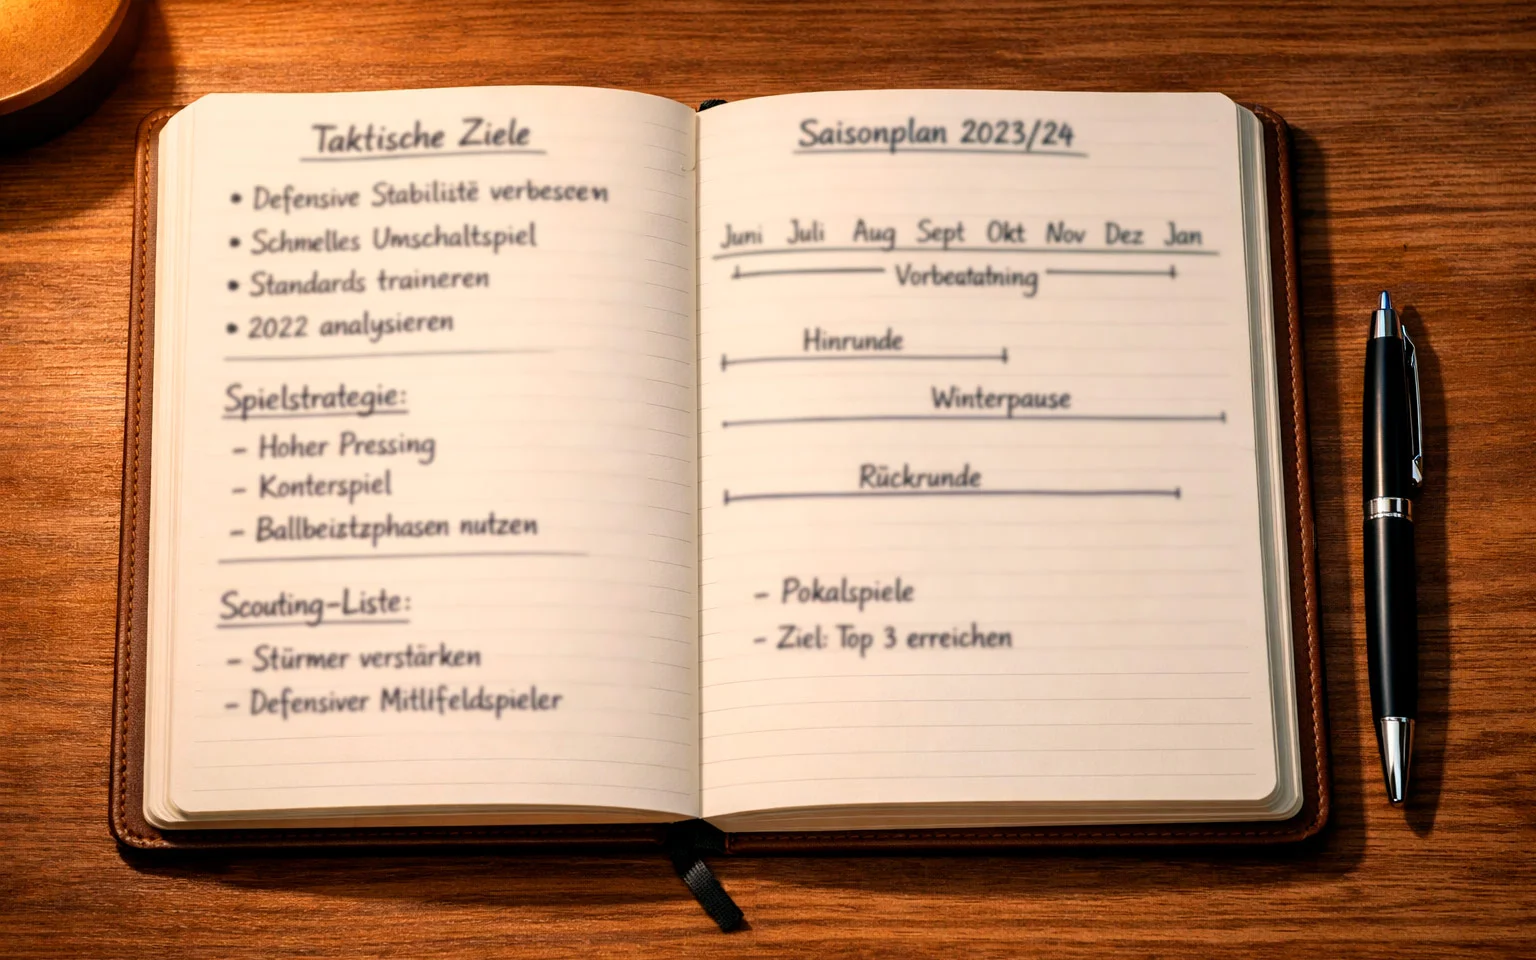 Taktische Ziele
• Defensive Stabilistë verbescen
• Schmelles Umschaltspiel
• Standards traineren
• 2022 analysieren
Spielstrategie:
- Hoher Pressing
- Konterspiel
- Ballbeiztzphasen nutzen
Scouting-Liste:
- Stürmer verstärken
- Defensiver Mitlifeldspieler
Saisonplan 2023/24
Juni Juli Aug Sept Okt Nov Dez Jan
Vorbeatatning
Hinrunde
Winterpause
Rückrunde
- Pokalspiele
- Ziel: Top 3 erreichen